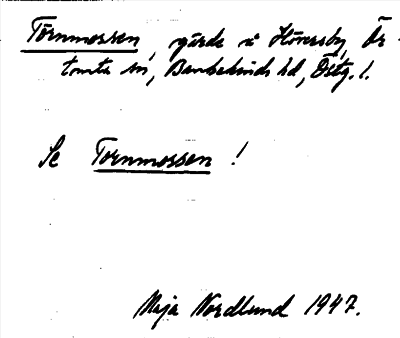 Törnmossen, gärde i Höversby, Ör-
tomta sn, Bankekinds hd, Östg. l.
Se Tornmossen !
Maja Nordlund 1947.